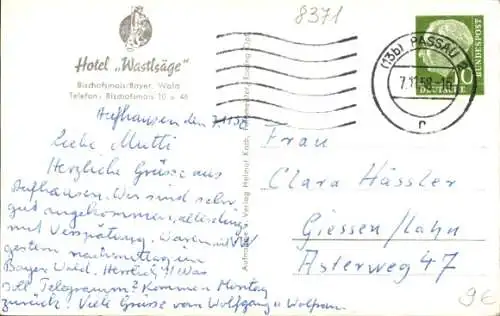 8371
Hotel „Wastlsäge"
Bischofsmais/Bayer. Wald
Telefon: Bischofsmais 10 u. 46
(13b) PASSAU 2
7.11.58-16
r
10
DEUTSCHE
BUNDESPOST
Aufhausen den 7.11.58
Liebe Mutti
Herzliche Grüsse aus
Aufhausen. Wir sind sehr
gut angekommen, allerdings
mit Verspätung. Waren mit VW
gestern nachmittag im
Bayer. Wald. Herrlich!!! Was
soll Telegramm? Kommen Montag
zurück. Viele Grüsse von Wolfgang u Wolfram
Aufnahme u. Verlag Helmut Koch
Frau
Clara Hässler
Giessen/Lahn
Asterweg 47
9€